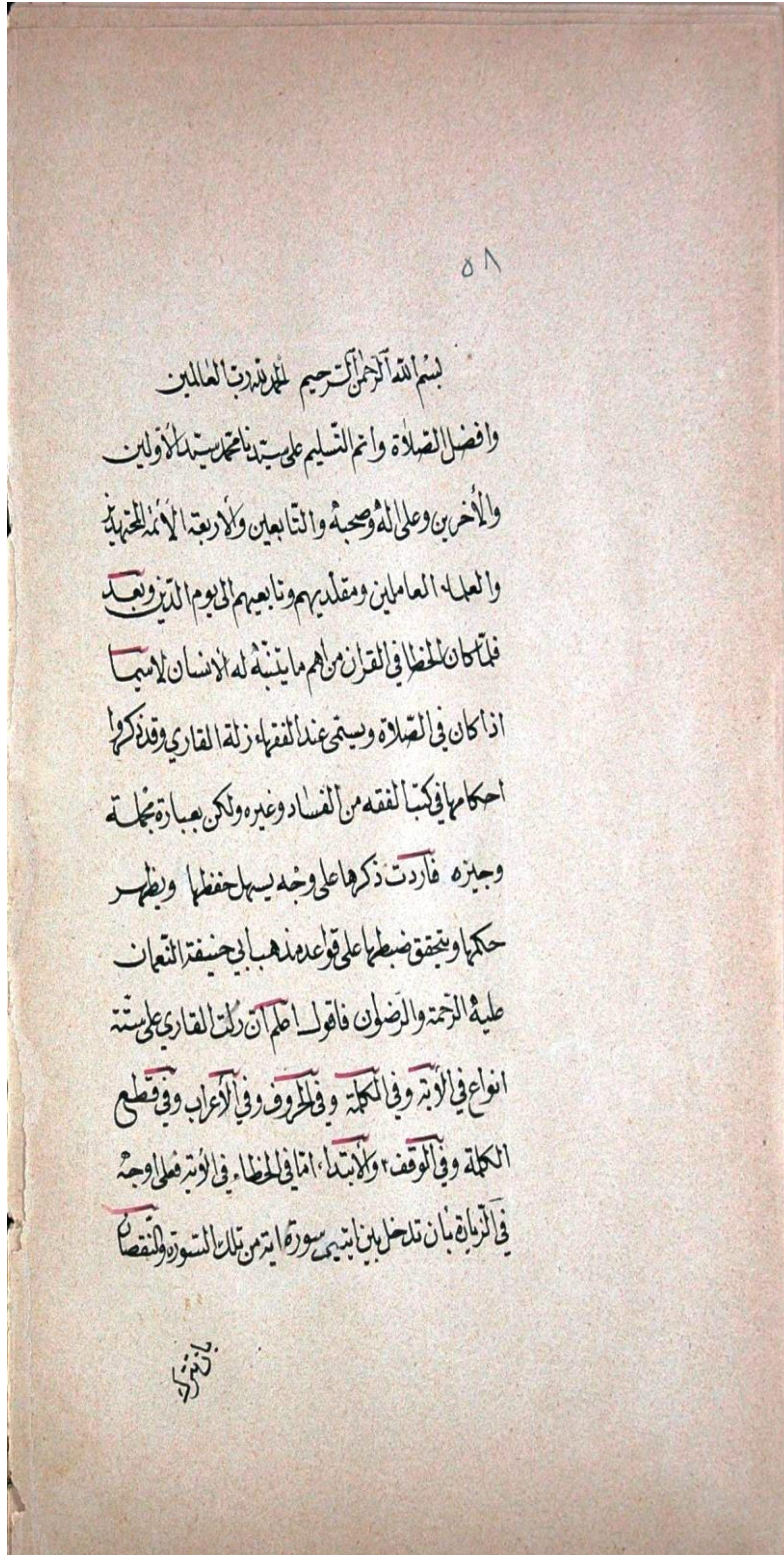 ٥٨
بسم الله الرحمن الرحيم الحمد لله رب العالمين
وافضل الصلاة واتم التسليم على سيدنا محمد سيد الاولين
والأخرين وعلى اله وصحبه والتابعين والاربعة الأئمة المجتهدين
والعلماء العاملين ومقلديهم وتابعيهم الى يوم الدين وبعد
فلما كان الخطا في القران من اهم ما يتنبه له الانسان لاسيما
اذا كان في الصلاة ويسمى عند الفقهاء زلة القاري وقد ذكروا
احكامها في كتب الفقه من الفساد وغيره ولكن بعبارة مجملة
وجيزه فاردت ذكرها على وجه يسهل حفظها ويظهر
حكمها ويتحقق ضبطها على قواعد مذهب ابي حنيفة النعمان
عليه الرحمة والرضوان فاقول اعلم ان زلت القاري على ستة
انواع في الأية وفي الكلمة وفي الحروف وفي الأعراب وفي قطع
الكلمة وفي الوقف والأبتداء اما في الخطاء في الأية فعلى اوجه
في الزيادة بان تدخل بين ايتين سورة اية من تلك السورة والنقصان
بان تترك